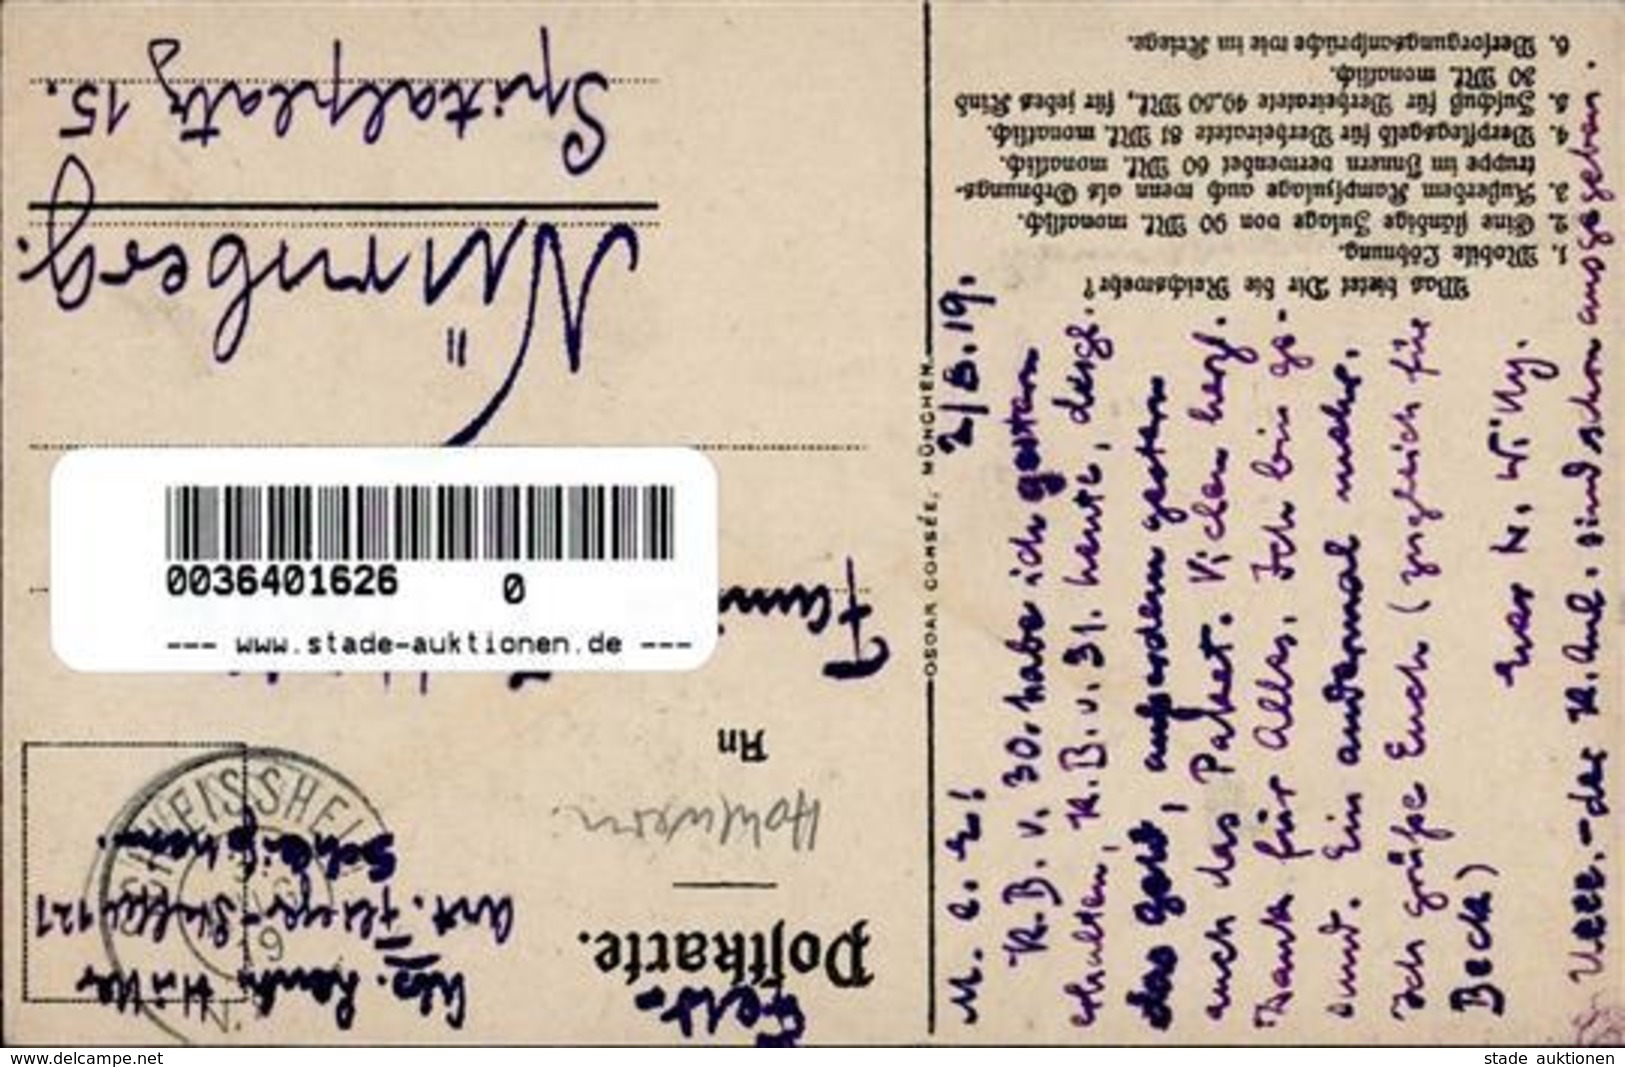 Feld-
Postkarte.
Abs. Leutn. Hütter
Art. Flieger-Staffel 121
Schleißheim.
SCHLEISSHEIM
19
An
Fami
Nürnberg.
Spitalplatz 15.
0036401626 0
--- www.stade-auktionen.de ---
OSCAR CONSÉE, MÜNCHEN
Was bietet Dir die Reichswehr?
1. Mobile Löhnung.
2. Eine ständige Zulage von 90 Mk. monatlich.
3. Außerdem Kampfzulage auch wenn als Ordnungs-
truppe im Innern verwendet 60 Mk. monatlich.
4. Verpflegsgeld für Verheiratete 81 Mk. monatlich.
5. Zuschuß für Verheiratete 49.50 Mk., für jedes Kind
30 Mk. monatlich.
6. Versorgungsansprüche wie im Kriege.
M. l. E! 2/6.19.
K.B. v. 30. habe ich gestern
erhalten, K.B. v. 31. heute, desgl.
das Geld, außerdem gestern
auch das Paket. Vielen herzl.
Dank für Alles. Ich bin ge-
sund. Ein andermal mehr.
Ich grüße Euch (zugleich für
Beck)
Euer N. Willy.
der K. Anl. sind schon ausgegeben.
www.delcampe.net
stade auktionen